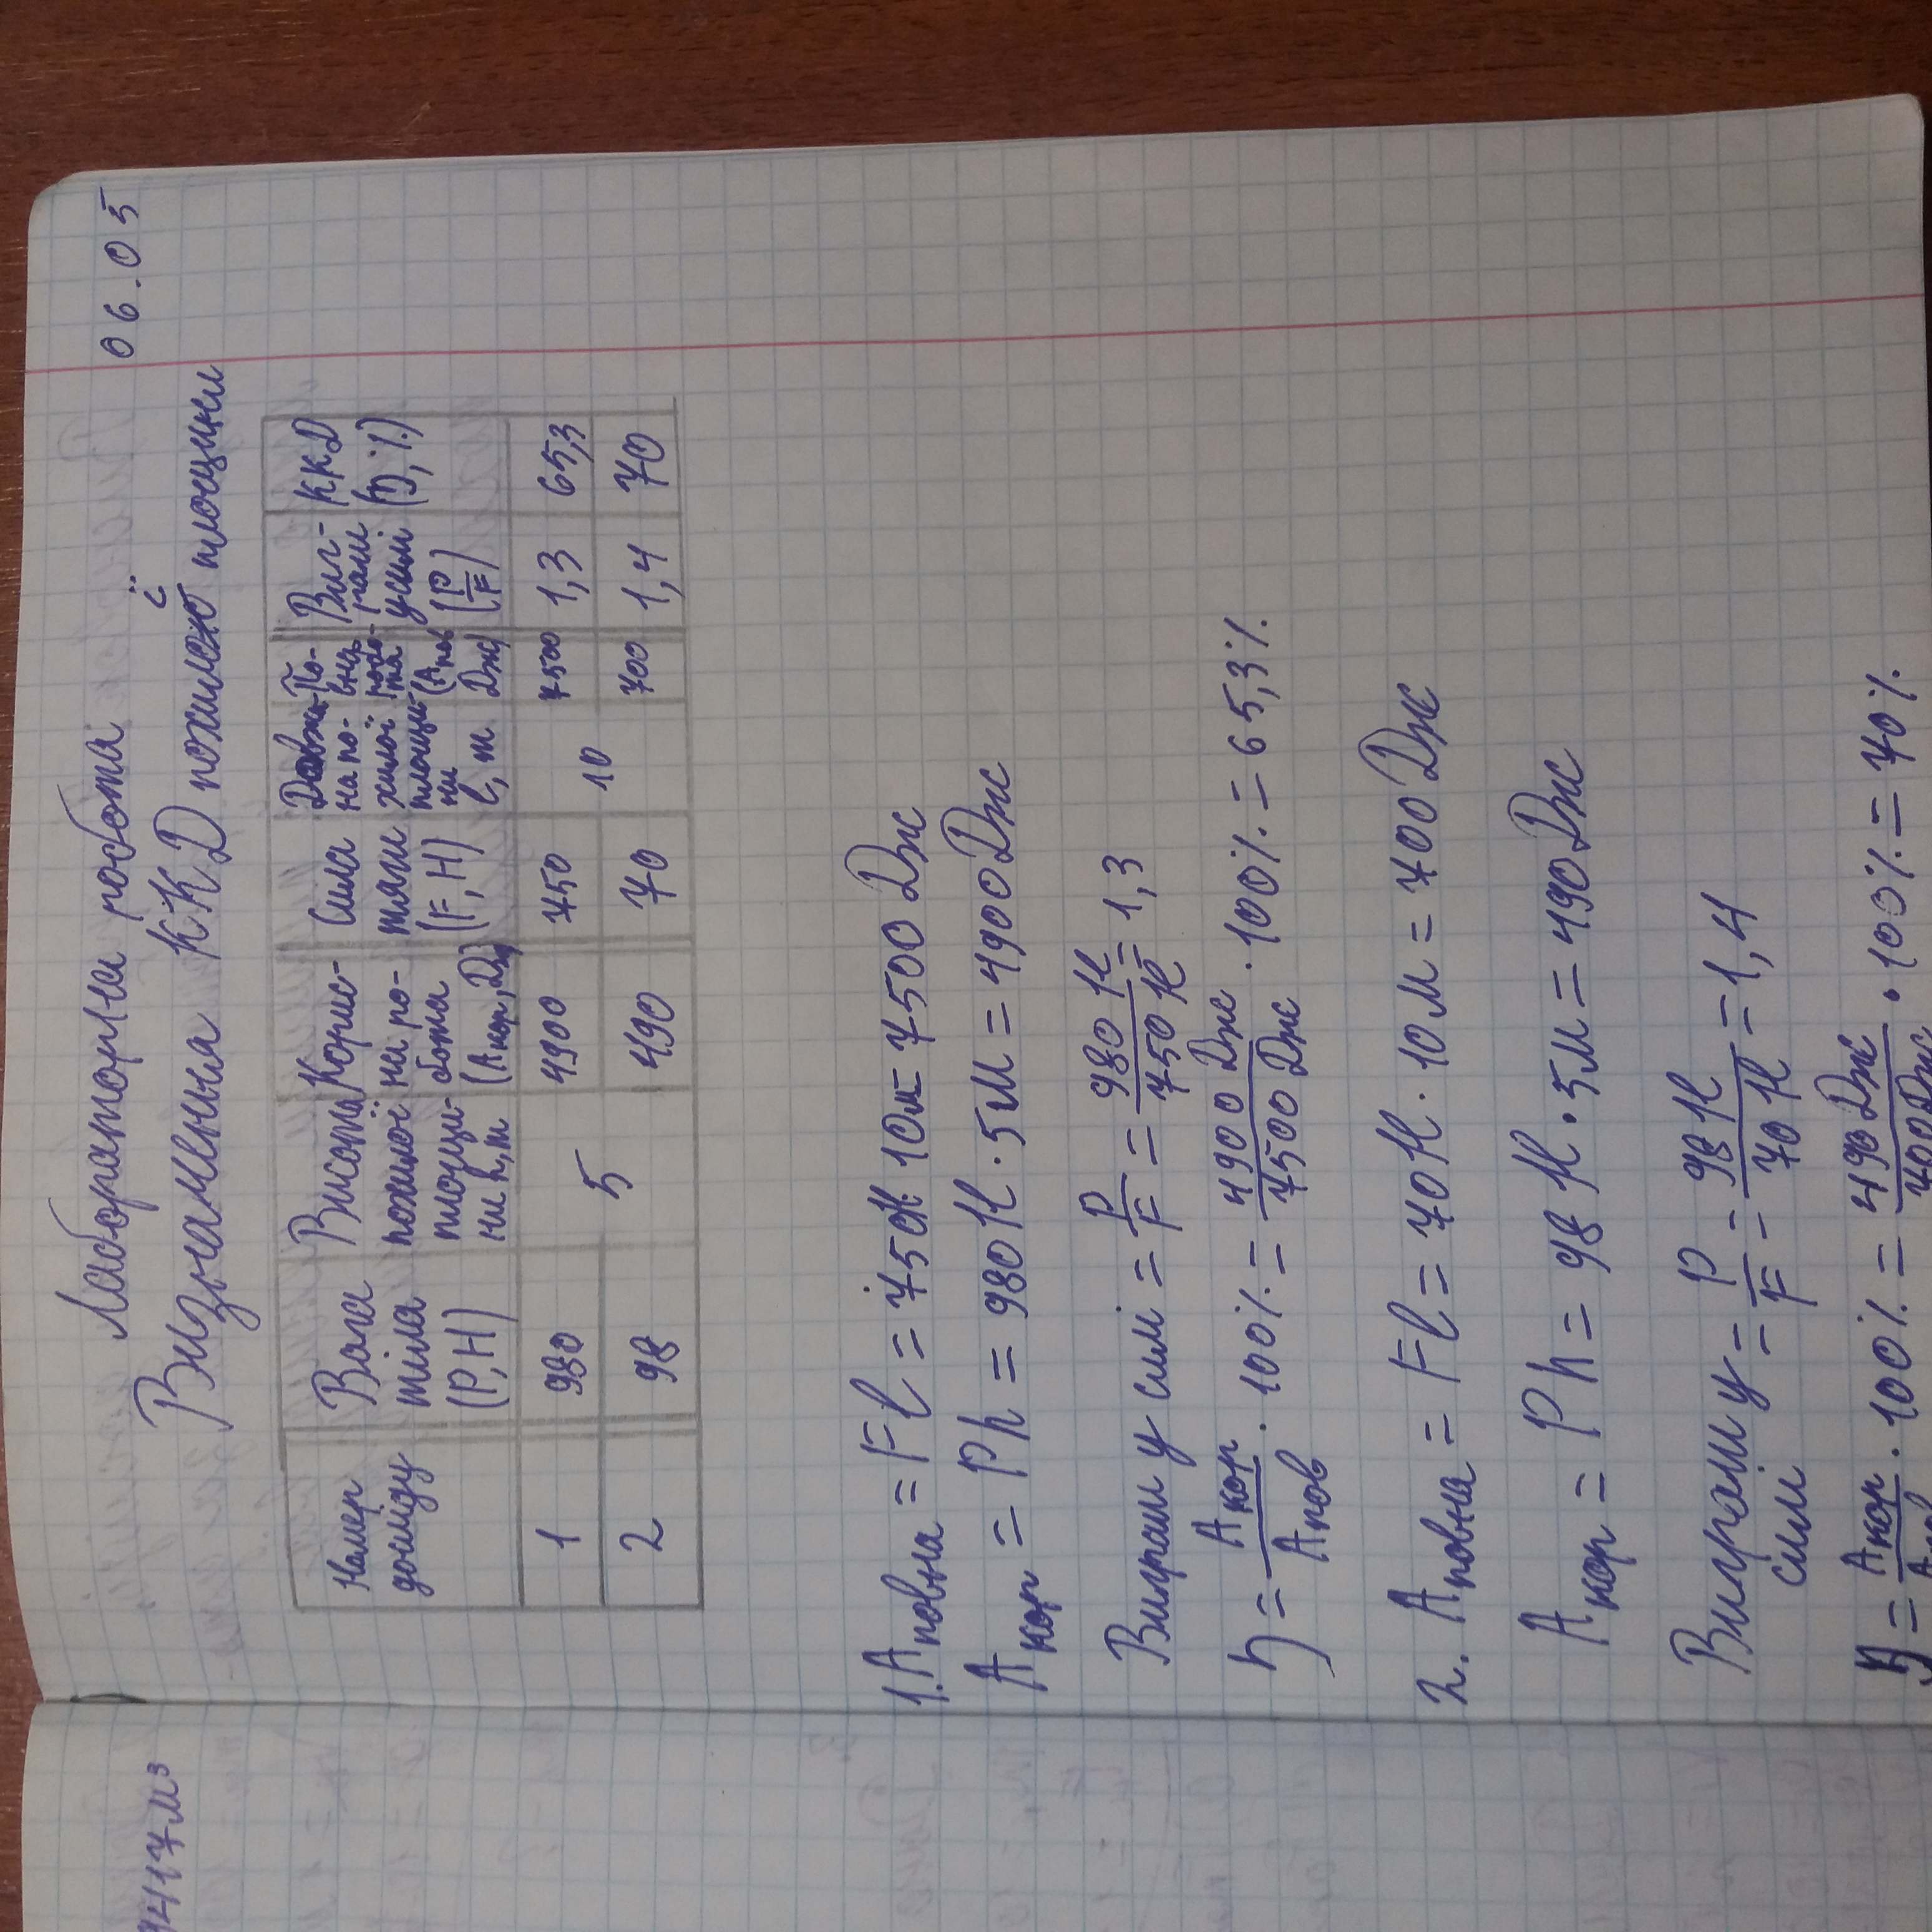 06.05
Лабораторна робота
Визначення ККД похилої площини
Номер досліду
Вага тіла (P, H)
Висота похилої площини h, m
Корисна робота (Aкор, Дж)
Сила тяги (F, H)
Довжина похилої площини l, m
Повна робота (Aпов Дж)
Виграш у силі (P/F)
ККД (η, %)
1 980 5 4900 750 10 7500 1,3 65,3
2 98 490 70 700 1,4 70
1. Aповна = Fl = 750H · 10м = 7500 Дж
Aкор = Ph = 980 H · 5м = 4900 Дж
Виграш у силі = P/F = 980 H/750 H = 1,3
η = Aкор/Aпов · 100% = 4900 Дж/7500 Дж · 100% = 65,3%
2. Aповна = Fl = 70H · 10м = 700 Дж
Aкор = Ph = 98 H · 5м = 490 Дж
Виграш у силі = P/F = 98 H/70 H = 1,4
η = Aкор/Aпов · 100% = 490 Дж/700 Дж · 100% = 70%
9417м³